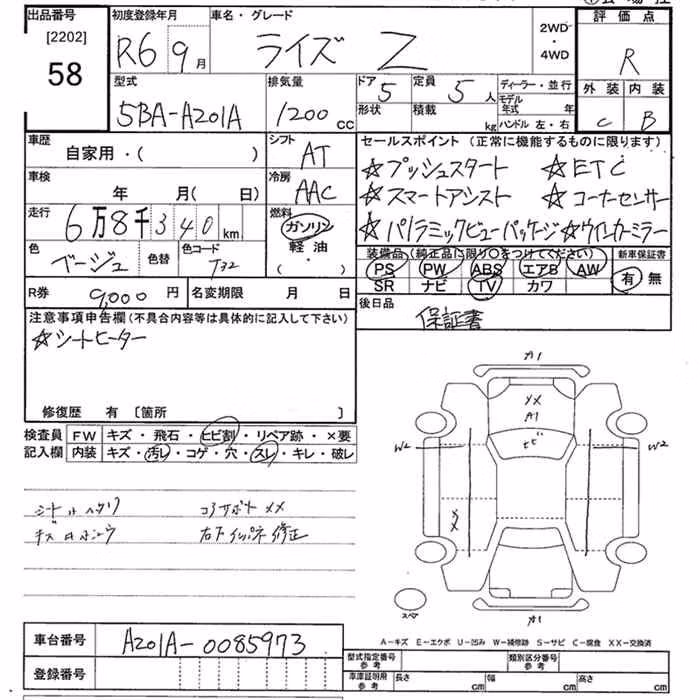 出品番号 初度登録年月 車名・グレード 評価点
[2202] 58
R6 9月 ライズ Z 2WD・4WD R
型式 排気量 ドア 5 定員 5人 ディーラー・並行 外装 内装
5BA-A201A 1200cc 形状 積載 kg モデル年式 年 ハンドル 左・右 C B
車歴 シフト セールスポイント (正常に機能するものに限ります)
自家用・( ) AT ☆プッシュスタート ☆ETC
車検 冷房 ☆スマートアシスト ☆コーナーセンサー
年 月( 日) AAC
走行 燃料 ☆パノラミックビューパッケージ ☆ウインカーミラー
6万8千340km ガソリン
色 色替 色コード 軽油 装備品(純正品に限り○をつけてください) 新車保証書
ベージュ T32 (・) PS PW ABS エアB AW 有 無
SR ナビ TV カワ
R券 9,000円 名変期限 月 日 後日品
保証書
注意事項申告欄(不具合内容等は具体的に記入して下さい)
☆シートヒーター
修復歴 有 〔箇所 〕
検査員 FW キズ・飛石・ヒビ割・リペア跡・×要
記入欄 内装 キズ・汚レ・コゲ・穴・スレ・キレ・破レ
A1
XX
A1
ヒビ
W2 W2
XX
コアサポート XX
右下インパネ修正
A1
A-キズ E-エクボ U-凹み W-補修跡 S-サビ C-腐食 XX-交換済
車台番号 A201A-0085973
型式指定番号 参考 類別区分番号 参考
登録番号
車庫証明用 参考 長さ cm 幅 cm 高さ cm